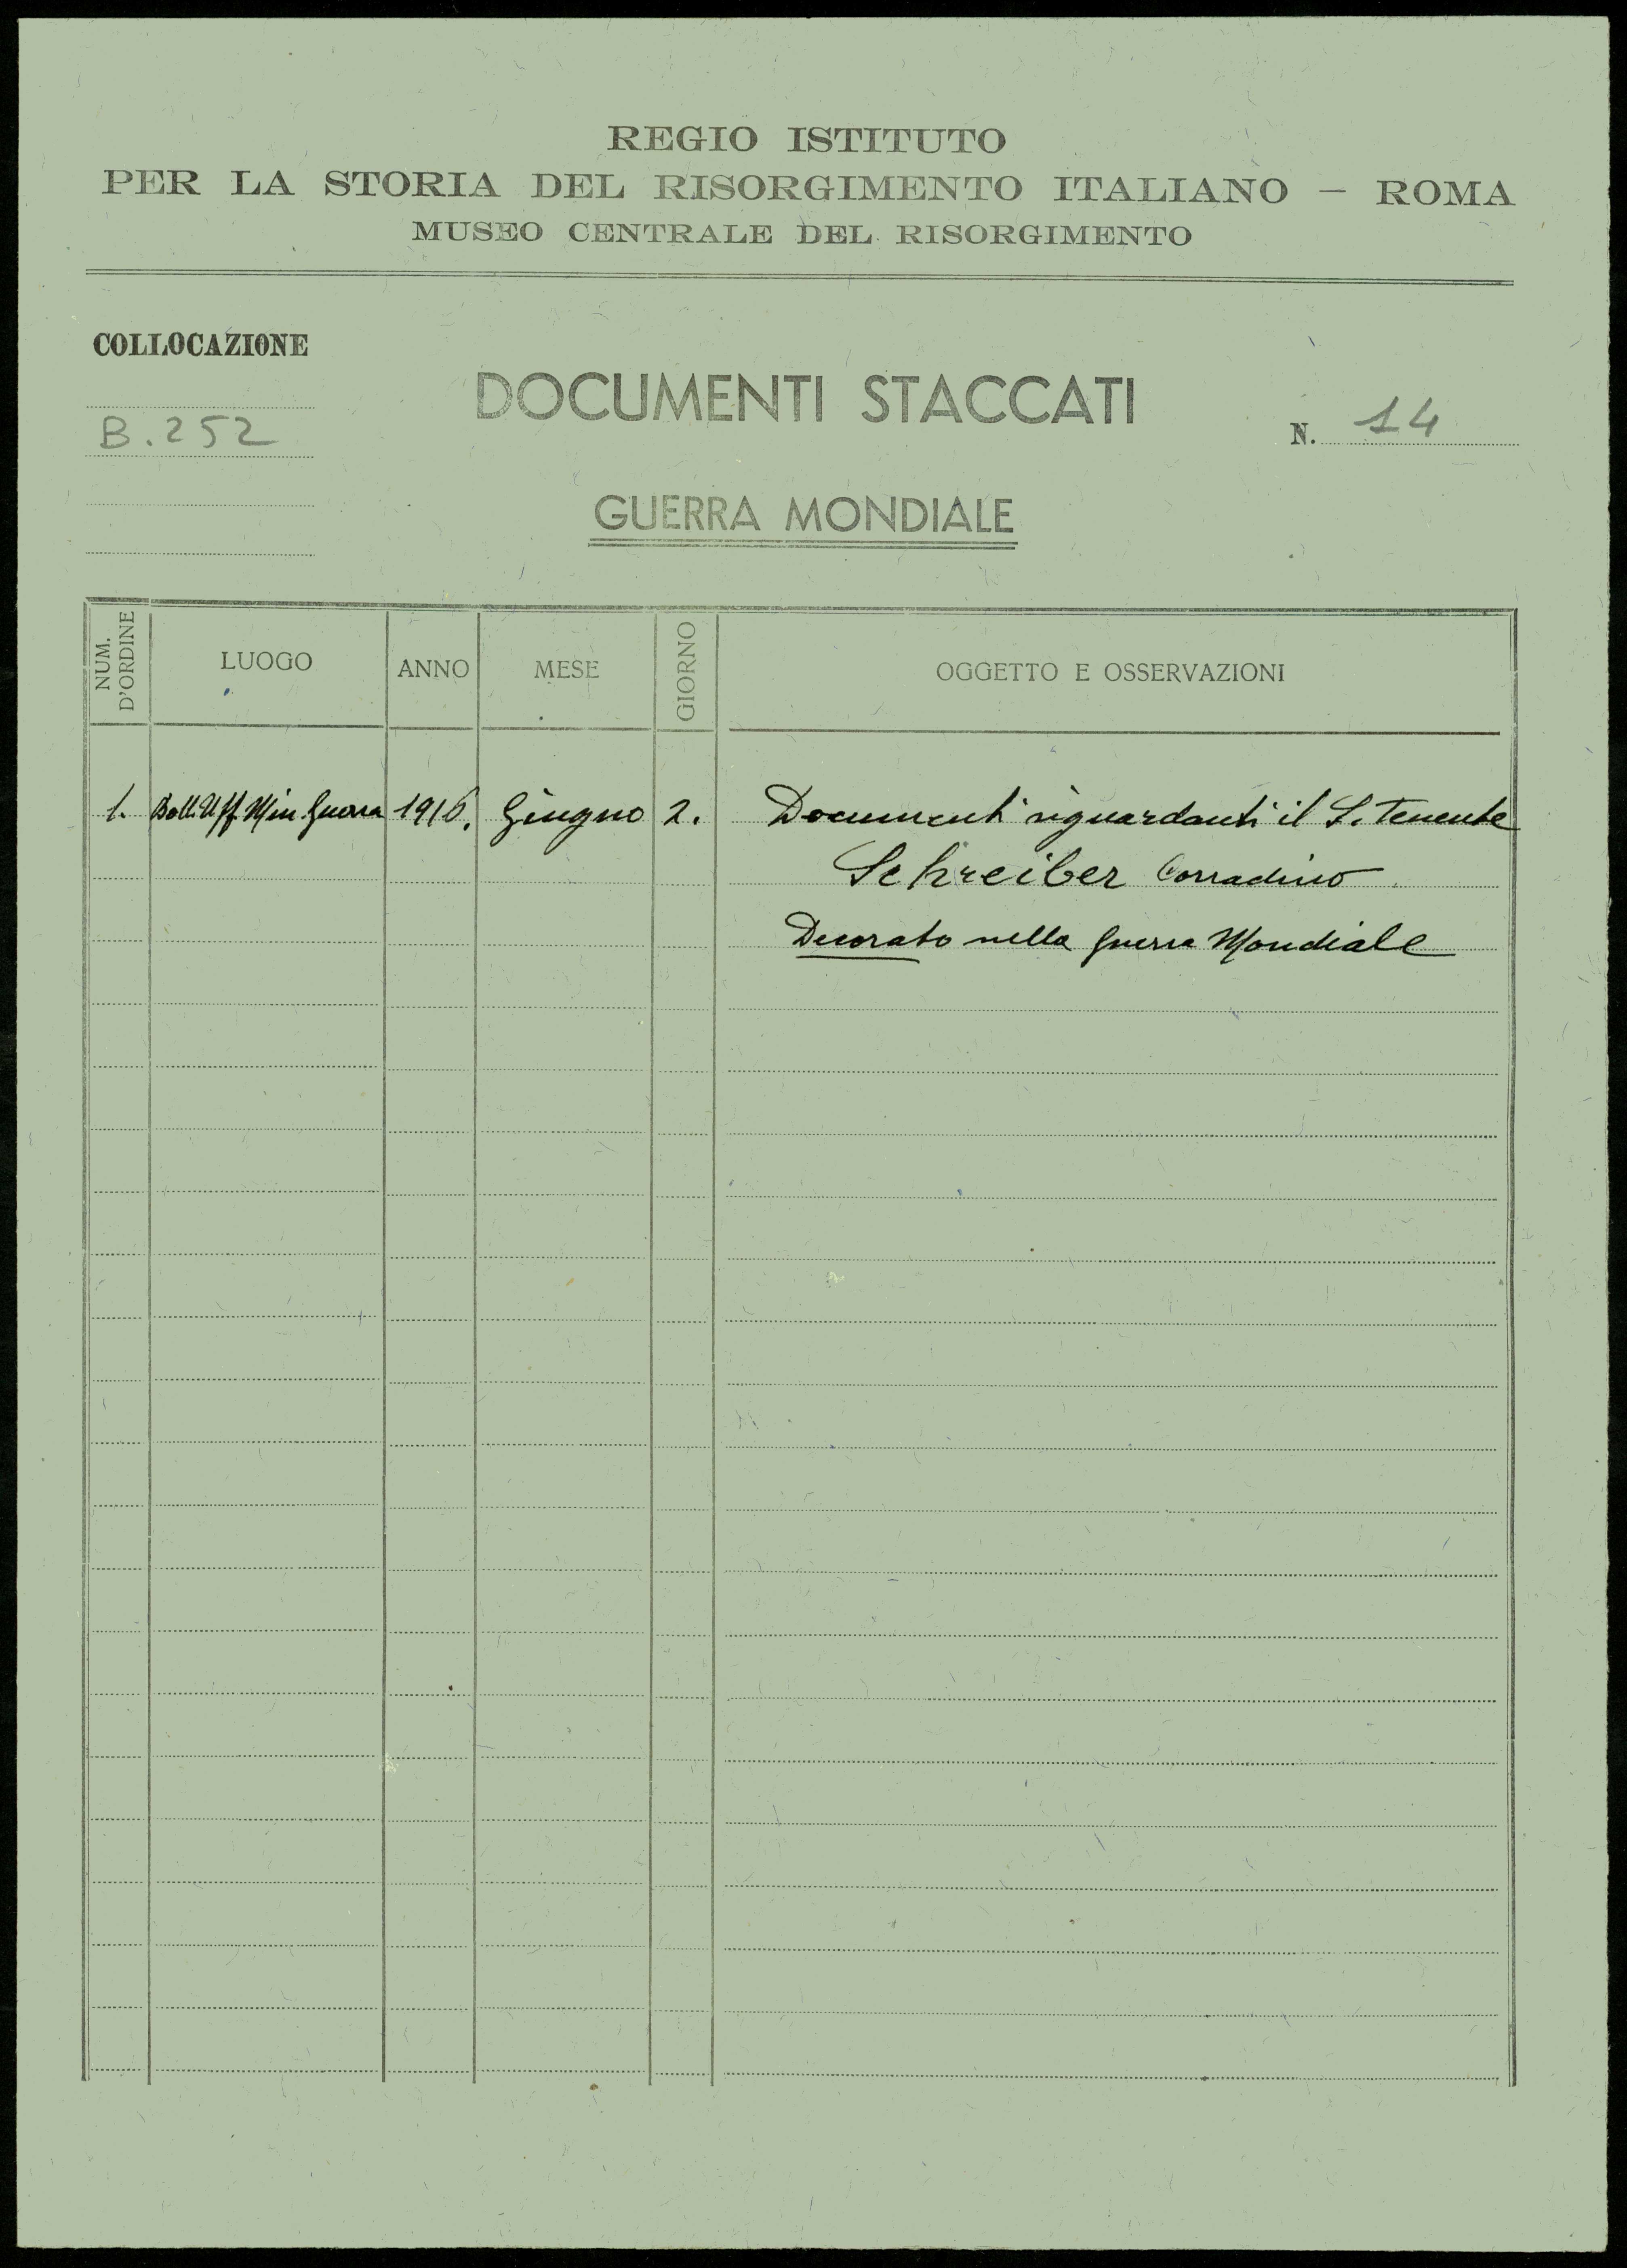 REGIO ISTITUTO
PER LA STORIA DEL RISORGIMENTO ITALIANO – ROMA
MUSEO CENTRALE DEL RISORGIMENTO
COLLOCAZIONE
B.252
DOCUMENTI STACCATI
N. 14
GUERRA MONDIALE
NUM. D'ORDINE LUOGO ANNO MESE GIORNO OGGETTO E OSSERVAZIONI
1. Boll. Uff. Min Guerra 1916. Giugno 2. Documenti riguardanti il S. Tenente
Schreiber Corradino
Decorato nella Guerra Mondiale